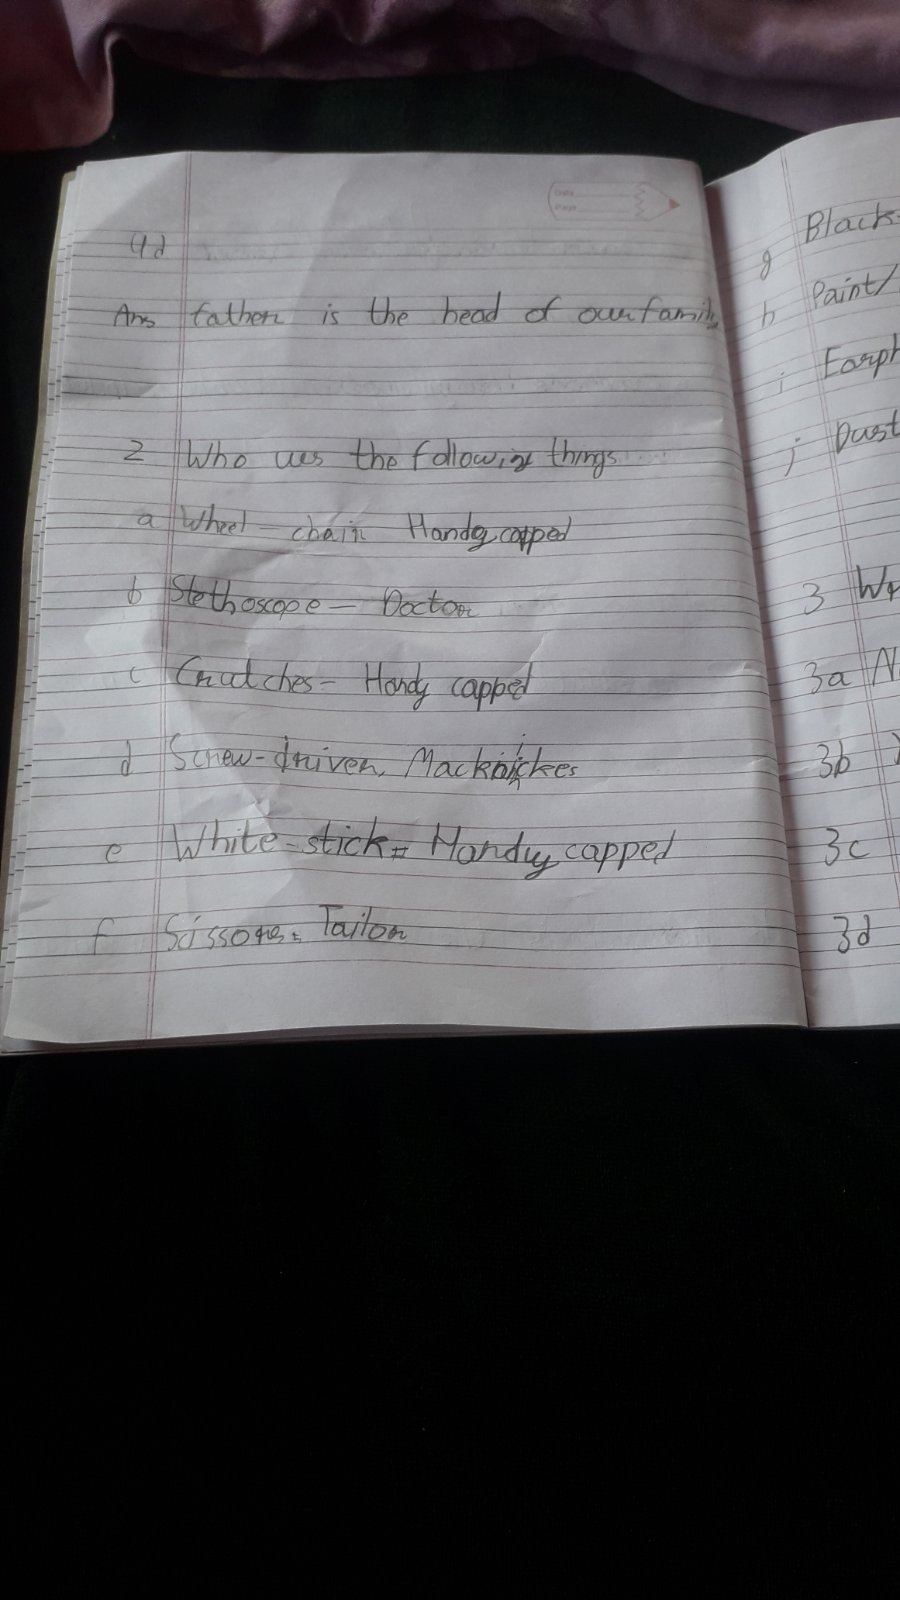 4d
Ans father is the head of our family
2 Who ues the following things
a Wheel - chair Handy capped
b Stethoscope - Doctor
c Crutches - Handy capped
d Screw-driver,
e White-stick = Handy capped
f Scissors = Tailor
g Black-
h Paint/
i Earph
j Dust
3 Wr
3a N
3b
3c
3d